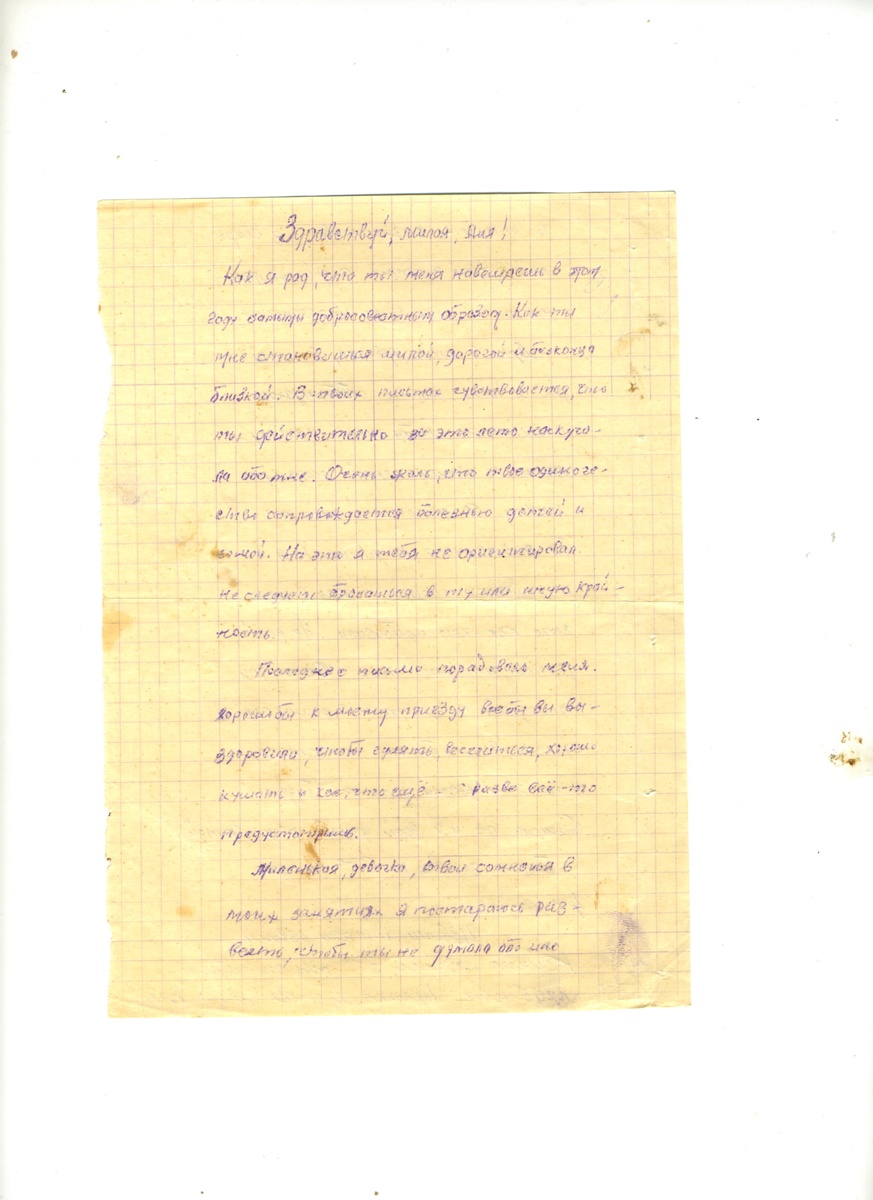 Здравствуй, милая, Аня!
Как я рад, что ты меня навещаешь в этом
году самым добросовестным образом. Как ты
мне становишься милой, дорогой и бесконца
близкой. В твоих письмах чувствовается, что
ты действительно за это лето наскуча-
ла обо мне. Очень жаль, что твое одиноче-
ство сопровождается болезнью детей и
самой. На это я тебя не ориентировал
не следует бросаться в ту или иную край-
ность
Последнее письмо порадовало меня.
хорошо бы к моему приезду все бы вы вы-
здоровили, чтобы гулять, веселиться, хорошо
кушать и кое, что ещё разве всё-то
предусмотришь.
Миленькая, девочка, твои сомнения в
моих занятиях я постараюсь раз-
веять, чтобы ты не думала обо мне